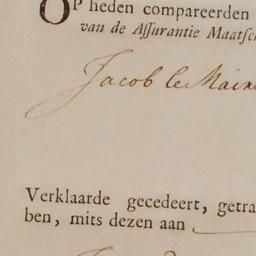 OP heden compareerden
van de Aſſurantie Maatſch
Jacob le Maire
Verklaarde gecedeert, getra
ben, mits dezen aan